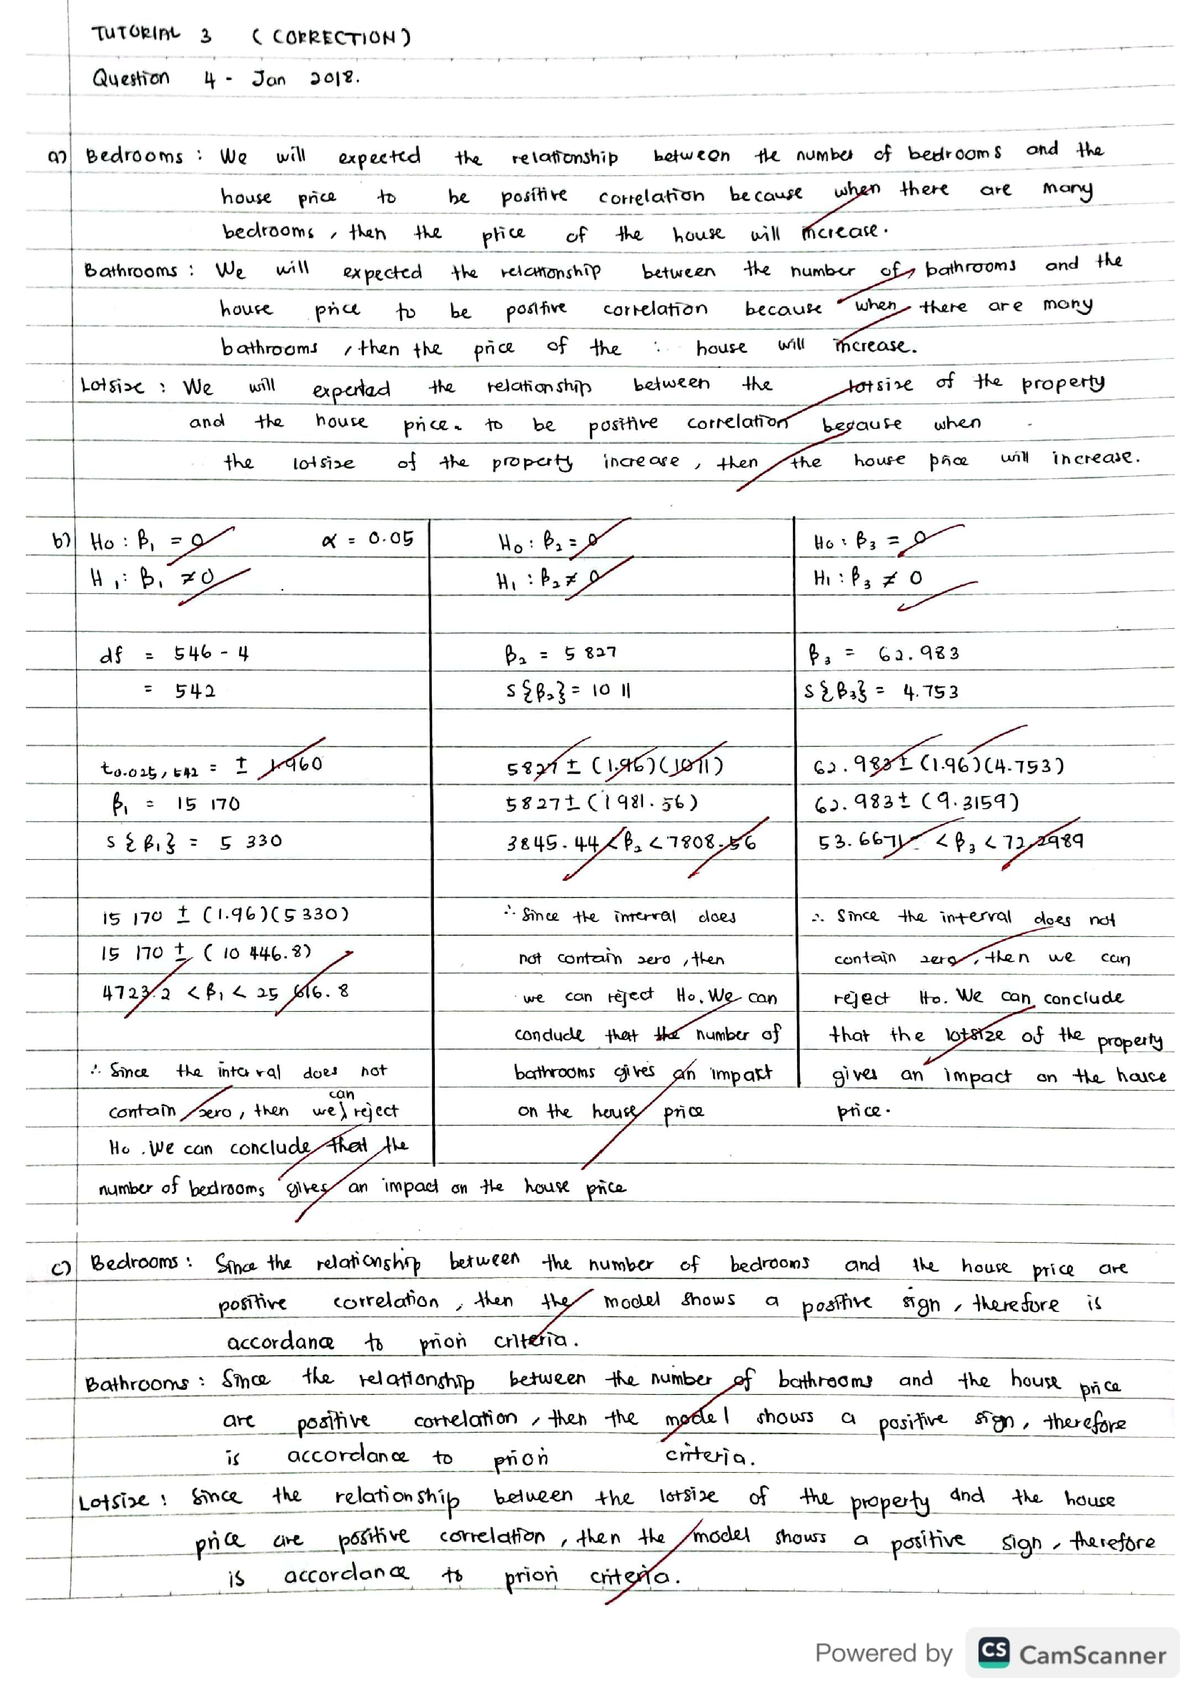 TUTORIAL 3 (CORRECTION)
Question 4 - Jan 2018.
a) Bedrooms : We will expected the relationship between the number of bedrooms and the
house price to be positive correlation because when there are many
bedrooms, then the price of the house will increase.
Bathrooms : We will expected the relationship between the number of bathrooms and the
house price to be positive correlation because when there are many
bathrooms, then the price of the : house will increase.
Lotsize : We will expected the relationship between the lotsize of the property
and the house price. to be positive correlation because when
the lotsize of the property increase, then the house price will increase.
b) H0 : β1 = 0 α = 0.05
H1 : β1 ≠ 0
df = 546 - 4
= 542
t0.025, 542 = ± 1.960
β1 = 15 170
s{β1} = 5 330
15 170 ± (1.96)(5330)
15 170 ± (10 446.8)
4723.2 < β1 < 25 616.8
∴ Since the interval does not
contain zero, then we can reject
H0. We can conclude that the
number of bedrooms gives an impact on the house price
H0 : β2 = 0
H1 : β2 ≠ 0
β2 = 5 827
s{β2} = 10 11
5827 ± (1.96)(1011)
5827 ± (1981.56)
3845.44 < β2 < 7808.56
∴ Since the interval does
not contain zero, then
we can reject H0. We can
conclude that the number of
bathrooms gives an impact
on the house price
H0 : β3 = 0
H1 : β3 ≠ 0
β3 = 62.983
s{β3} = 4.753
62.983 ± (1.96)(4.753)
62.983 ± (9.3159)
53.6671 < β3 < 72.2989
∴ Since the interval does not
contain zero, then we can
reject H0. We can conclude
that the lotsize of the property
gives an impact on the house
price.
c) Bedrooms : Since the relationship between the number of bedrooms and the house price are
positive correlation, then the model shows a positive sign, therefore is
accordance to priori criteria.
Bathrooms : Since the relationship between the number of bathrooms and the house price
are positive correlation, then the model shows a positive sign, therefore
is accordance to priori criteria.
Lotsize : Since the relationship between the lotsize of the property and the house
price are positive correlation, then the model shows a positive sign, therefore
is accordance to priori criteria.
Powered by CS CamScanner